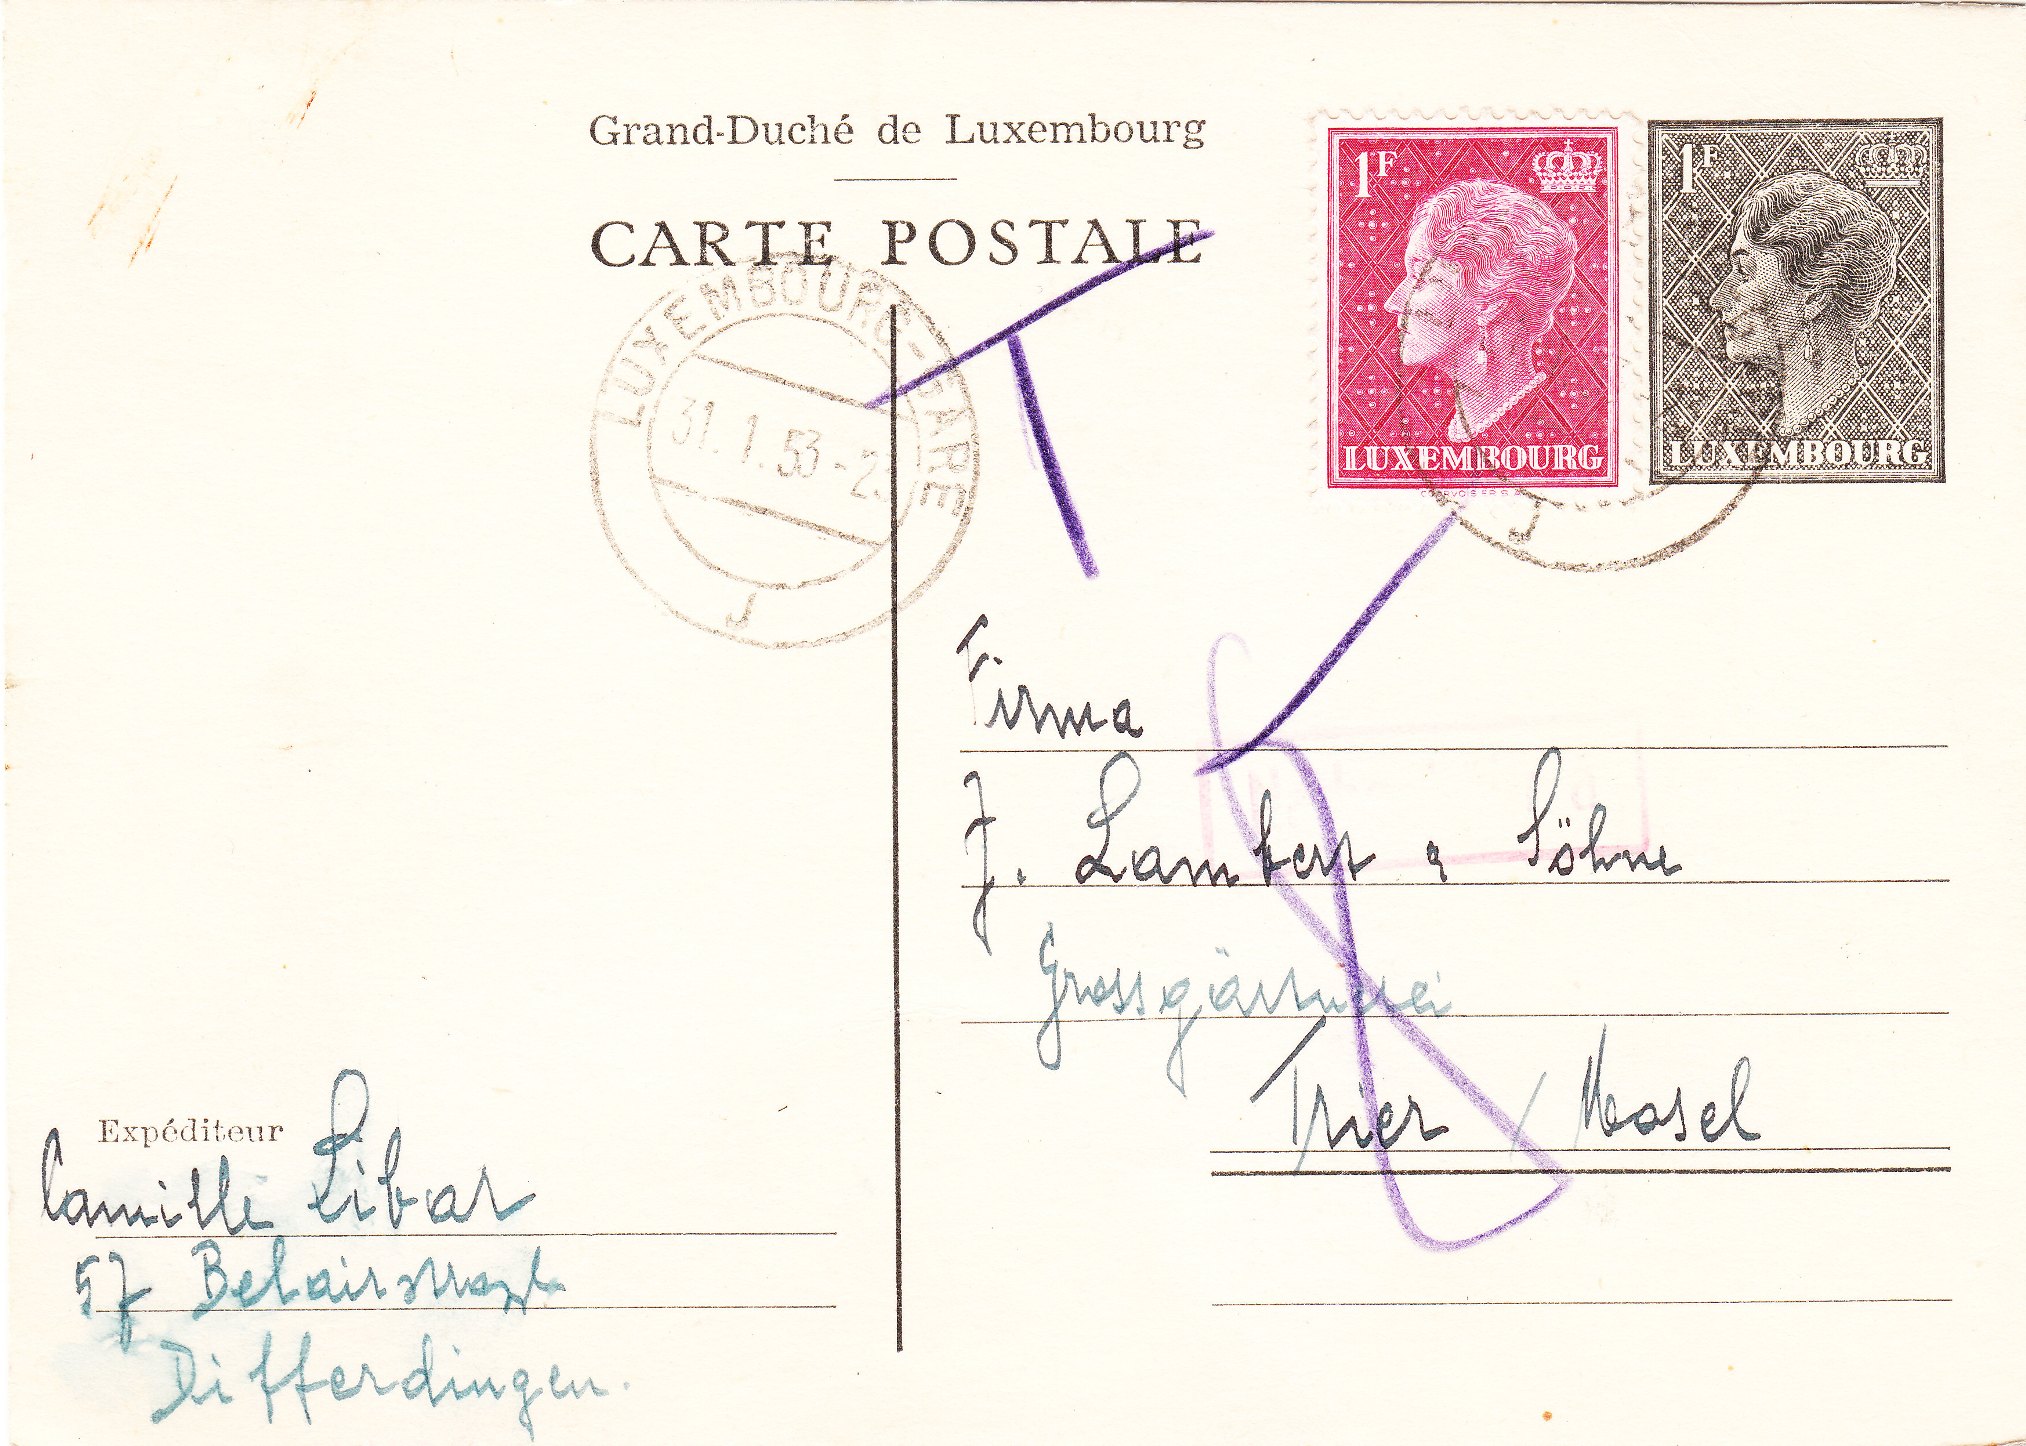 Grand-Duché de Luxembourg
CARTE POSTALE
1F
LUXEMBOURG
COURVOISIER S.A.
1F
LUXEMBOURG
LUXEMBOURG-GARE
31.1.53-2
J
J
T
Firma
J. Lambert & Söhne
Grossgärtnerei
Trier / Mosel
Expéditeur
Camille Libar
57 Belairstrasse
Differdingen.